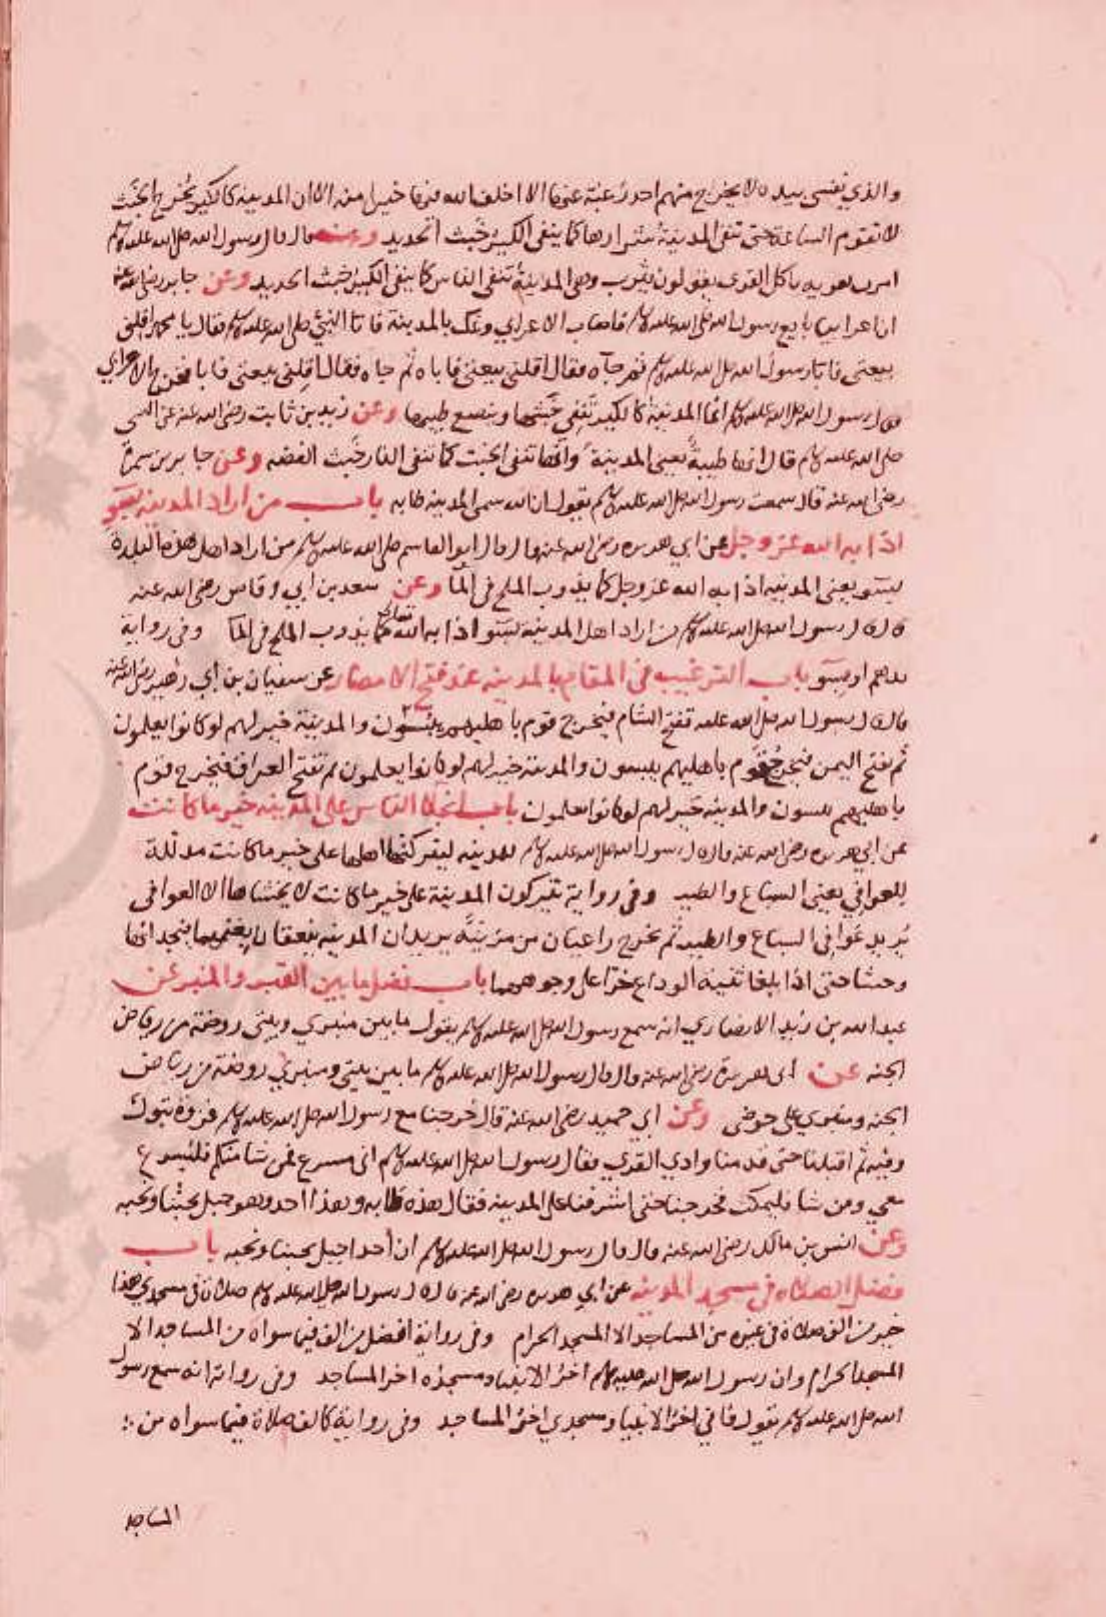 والذي نفسي بيده لا يخرج منهم احد رغبة عنها الا اخلف الله فيها خيرا منه الا ان المدينة كالكير تخرج الخبث
لا تقوم الساعة حتى تنفي المدينة شرارها كما ينفي الكير خبث الحديد وعنه قال قال رسول الله صلى الله عليه وسلم
امرت بقرية تاكل القرى يقولون يثرب وهي المدينة تنفي الناس كما ينفي الكير خبث الحديد وعن جابر رضي الله عنه
ان اعرابيا بايع رسول الله صلى الله عليه وسلم فاصاب الاعرابي وعك بالمدينة فاتا النبي صلى الله عليه وسلم فقال يا محمد اقلني
بيعتي فابا رسول الله صلى الله عليه وسلم ثم جآه فقال اقلني بيعتي فاباه ثم جاه فقال اقلني بيعتي فابا فخرج الاعرابي
فقال رسول الله صلى الله عليه وسلم انما المدينة كالكير تنفي خبثها وينصع طيبها وعن زيد بن ثابت رضي الله عنه عن النبي
صلى الله عليه وسلم قال انها طيبة يعني المدينة وانها تنفي الخبث كما تنفي النار خبث الفضه وعن جابر بن سمرة
رضي الله عنه قال سمعت رسول الله صلى الله عليه وسلم يقول ان الله سمى المدينه طابه باب من اراد المدينه بسو
اذابه الله عز وجل عن ابي هريره رضي الله عنه قال قال ابو القاسم صلى الله عليه وسلم من اراد اهل هذه البلدة
بسو يعني المدينه اذابه الله عز وجل كما يذوب الملح في المآ وعن سعد بن ابي وقاص رضي الله عنه
قال قال رسول الله صلى الله عليه وسلم من اراد اهل المدينة بسو اذابه الله تعالى كما يذوب الملح في المآ وفي رواية
بدهم او بسو باب الترغيب في المقام بالمدينه عند فتح الامصار عن سفيان بن ابي زهير رضي الله عنه
قال قال رسول الله صلى الله عليه تفتح الشام فيخرج قوم باهليهم يبسون والمدينة خير لهم لو كانوا يعلمون
ثم تفتح اليمن فيخرج قوم باهليهم يبسون والمدينه خير لهم لو كانوا يعلمون ثم تفتح العراق فيخرج قوم
باهليهم يبسون والمدينه خير لهم لو كانوا يعلمون باب الناس على المدينه خير ما كانت
عن ابي هريره رضي الله عنه قال قال رسول الله صلى الله عليه وسلم للمدينه ليتركنها اهلها على خير ما كانت مذللة
للعوافي يعني السباع والطير وفي رواية تتركون المدينة على خير ما كانت لا يغشاها الا العوافي
يريد عوافي السباع والطير ثم يخرج راعيان من مزينة يريدان المدينه ينعقان بغنمهما فيجدانها
وحشا حتى اذا بلغا ثنية الوداع خرا على وجوههما باب فضل ما بين القبر والمنبر عن
عبد الله بن زيد الانصاري انه سمع رسول الله صلى الله عليه وسلم يقول ما بين منبري وبيتي روضة من رياض
الجنه عن ابي هريرة رضي الله عنه قال قال رسول الله صلى الله عليه وسلم ما بين بيتي ومنبري روضة من رياض
الجنه ومنبري على حوضي وعن ابي حميد رضي الله عنه قال خرجنا مع رسول الله صلى الله عليه وسلم غزوة تبوك
وفيه ثم اقبلنا حتى قدمنا وادي القرى فقال رسول الله صلى الله عليه وسلم اني مسرع فمن شا منكم فليسرع
معي ومن شا فليمكث فخرجنا حتى اشرفنا على المدينه فقال هذه طابه وهذا احد وهو جبل يحبنا ونحبه
وعن انس بن مالك رضي الله عنه قال قال رسول الله صلى الله عليه وسلم ان أحدا جبل يحبنا ونحبه باب
فضل الصلاه في مسجد المدينه عن ابي هريره رضي الله عنه قال قال رسول الله صلى الله عليه وسلم صلاة في مسجدي هذا
خير من الف صلاة في غيره من المساجد الا المسجد الحرام وفي رواية افضل من الف فيما سواه من المساجد الا
المسجد الحرام وان رسول الله صلى الله عليه وسلم آخر الانبيا ومسجده اخر المساجد وفي رواية انه سمع رسول
الله صلى الله عليه وسلم يقول فاني اخر الانبيا ومسجدي اخر المساجد وفي رواية كالف صلاة فيما سواه من
المساجد